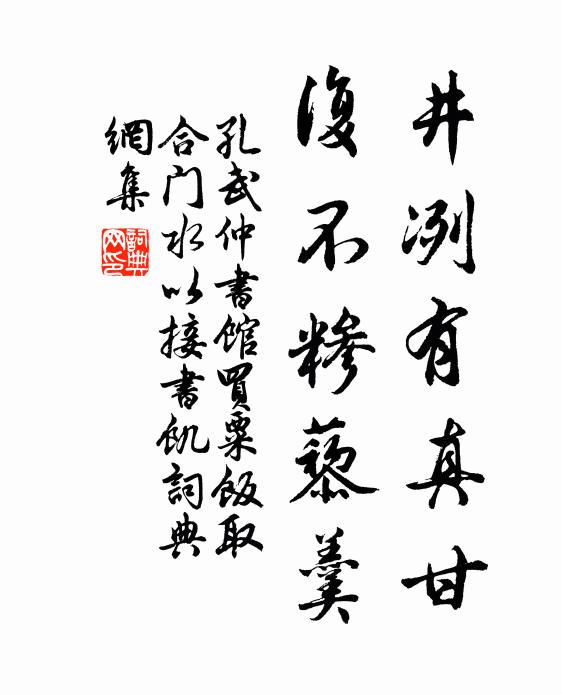 井冽有真甘
復不糝藜羹
孔武仲書館買粟飯取
合門水以接書飢詞典
網集
詞典
网印